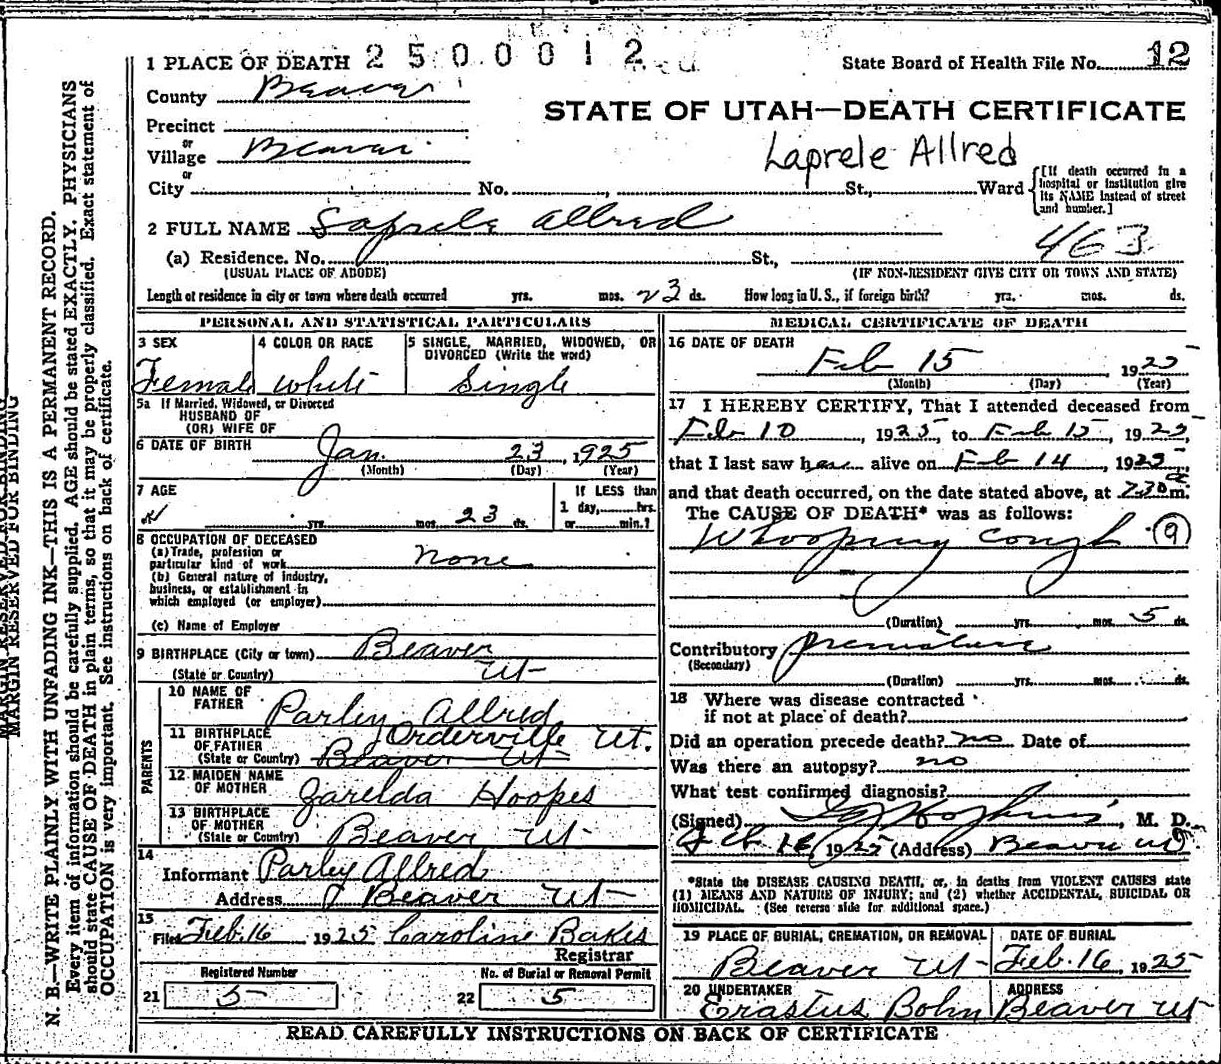 1 PLACE OF DEATH 2500012
State Board of Health File No. 12
County Beaver
STATE OF UTAH—DEATH CERTIFICATE
Precinct
or
Village Beaver
Laprele Allred
or
City No. , St., Ward
[If death occurred in a hospital or institution give its NAME instead of street and number.]
2 FULL NAME Laprele Allred
463
(a) Residence. No. St.,
(USUAL PLACE OF ABODE) (IF NON-RESIDENT GIVE CITY OR TOWN AND STATE)
Length of residence in city or town where death occurred yrs. mos. 23 ds. How long in U. S., if foreign birth? yrs. mos. ds.
PERSONAL AND STATISTICAL PARTICULARS
3 SEX 4 COLOR OR RACE 5 SINGLE, MARRIED, WIDOWED, OR
DIVORCED (Write the word)
Female White Single
5a If Married, Widowed, or Divorced
HUSBAND OF
(OR) WIFE OF
6 DATE OF BIRTH Jan. 23, 1925
(Month) (Day) (Year)
7 AGE If LESS than
1 day, hrs.
yrs. mos. 23 ds. or min.?
8 OCCUPATION OF DECEASED
(a) Trade, profession or
particular kind of work none
(b) General nature of industry,
business, or establishment in
which employed (or employer)
(c) Name of Employer
9 BIRTHPLACE (City or town) Beaver
(State or Country) Ut
PARENTS
10 NAME OF
FATHER Parley Allred
11 BIRTHPLACE Orderville Ut.
OF FATHER
(State or Country) Beaver Ut
12 MAIDEN NAME
OF MOTHER Zarelda Hoopes
13 BIRTHPLACE
OF MOTHER
(State or Country) Beaver Ut
14
Informant Parley Allred
Address Beaver Ut
15
Filed Feb. 16 1925 Caroline Bakes
Registrar
Registered Number No. of Burial or Removal Permit
21 5 22 5
MEDICAL CERTIFICATE OF DEATH
16 DATE OF DEATH
Feb 15 1925
(Month) (Day) (Year)
17 I HEREBY CERTIFY, That I attended deceased from
Feb 10, 1925, to Feb 15, 1925,
that I last saw her alive on Feb 14, 1925,
and that death occurred, on the date stated above, at 230 a m.
The CAUSE OF DEATH* was as follows:
Whooping cough (9)
(Duration) yrs. mos. 5 ds.
Contributory premature
(Secondary)
(Duration) yrs. mos. ds.
18 Where was disease contracted
if not at place of death?
Did an operation precede death? no Date of
Was there an autopsy? no
What test confirmed diagnosis?
(Signed) , M. D.
Feb 16, 1925 (Address) Beaver Ut
*State the DISEASE CAUSING DEATH, or, in deaths from VIOLENT CAUSES state
(1) MEANS AND NATURE OF INJURY; and (2) whether ACCIDENTAL, SUICIDAL OR
HOMICIDAL. (See reverse side for additional space.)
19 PLACE OF BURIAL, CREMATION, OR REMOVAL DATE OF BURIAL
Beaver Ut Feb. 16, 1925
20 UNDERTAKER ADDRESS
Erastus Bohn Beaver Ut
READ CAREFULLY INSTRUCTIONS ON BACK OF CERTIFICATE
MARGIN RESERVED FOR BINDING
MARGIN RESERVED FOR BINDING
N. B.—WRITE PLAINLY WITH UNFADING INK—THIS IS A PERMANENT RECORD.
Every item of information should be carefully supplied. AGE should be stated EXACTLY. PHYSICIANS
should state CAUSE OF DEATH in plain terms, so that it may be properly classified. Exact statement of
OCCUPATION is very important. See instructions on back of certificate.